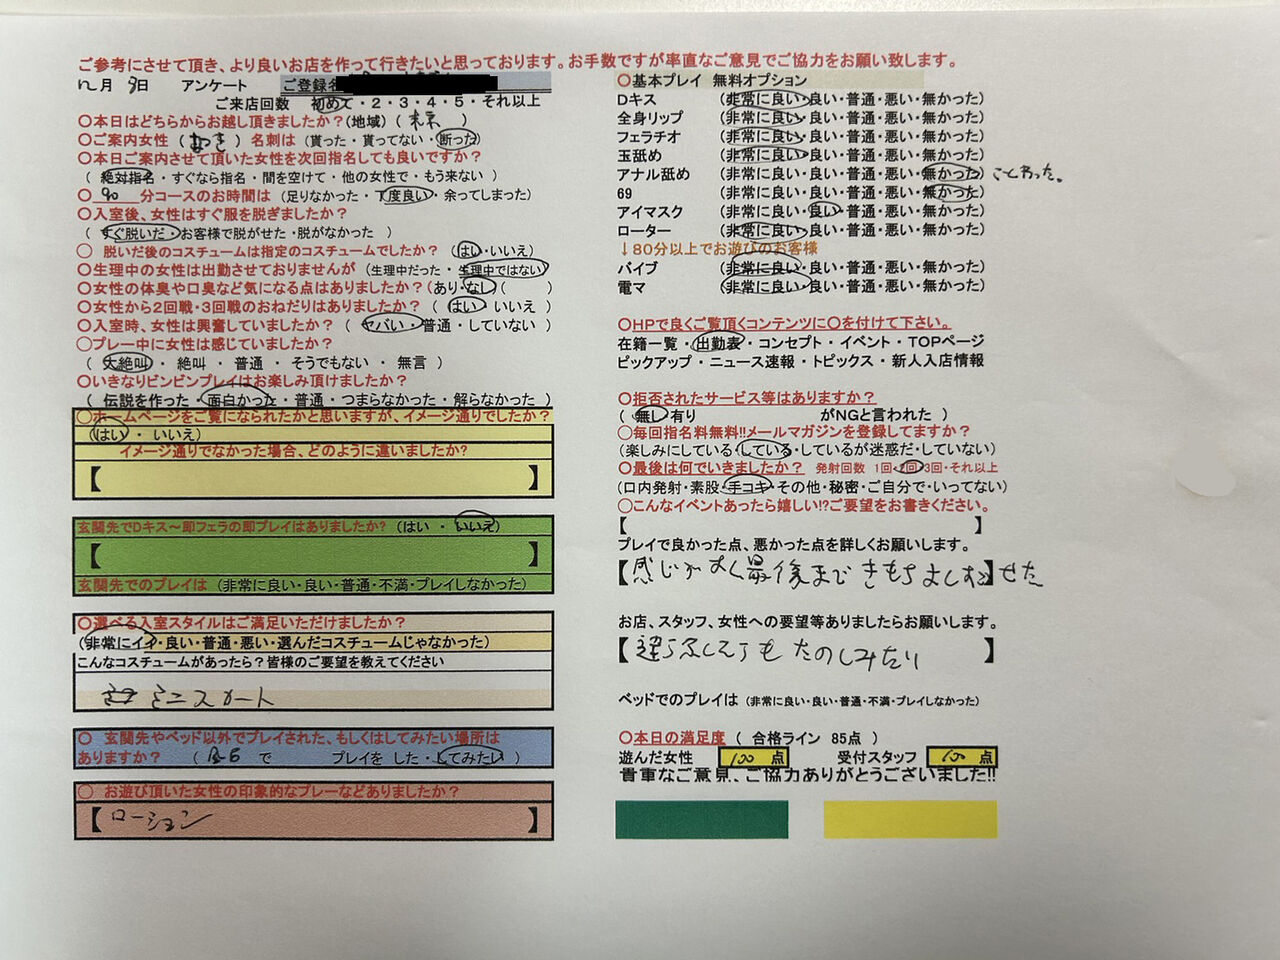 ご参考にさせて頂き、より良いお店を作って行きたいと思っております。お手数ですが率直なご意見でご協力をお願い致します。
月 日 アンケート ご登録名
ご来店回数 初めて・2・3・4・5・それ以上
〇本日はどちらからお越し頂きましたか?(地域) ( )
〇ご案内女性 ( ) 名刺は (貰った・貰ってない・断った)
〇本日ご案内させて頂いた女性を次回指名しても良いですか?
( 絶対指名・すぐなら指名・間を空けて・他の女性で・もう来ない )
〇 90 分コースのお時間は (足りなかった・丁度良い・余ってしまった)
〇入室後、女性はすぐ服を脱ぎましたか?
( すぐ脱いだ・お客様で脱がせた・脱がなかった )
〇 脱いだ後のコスチュームは指定のコスチュームでしたか? (はい・いいえ)
〇生理中の女性は出勤させておりませんが (生理中だった・生理中ではない)
〇女性の体臭や口臭など気になる点はありましたか?(あり・なし( )
〇女性から2回戦・3回戦のおねだりはありましたか? ( はい・いいえ )
〇入室時、女性は興奮していましたか? ( ヤバい・普通・していない )
〇プレー中に女性は感じていましたか?
( 大絶叫・絶叫・普通・そうでもない・無言 )
〇いきなりビンビンプレイはお楽しみ頂けましたか?
( 伝説を作った・面白かった・普通・つまらなかった・解らなかった )
〇ホームページをご覧になられたかと思いますが、イメージ通りでしたか?
(はい・ いいえ)
イメージ通りでなかった場合、どのように違いましたか?
【 】
玄関先でDキス～即フェラの即プレイはありましたか? (はい ・ いいえ)
【 】
玄関先でのプレイは (非常に良い・良い・普通・不満・プレイしなかった)
〇選べる入室スタイルはご満足いただけましたか?
(非常にイイ・良い・普通・悪い・選んだコスチュームじゃなかった)
こんなコスチュームがあったら?皆様のご要望を教えてください
ミニスカート
〇 玄関先やベッド以外でプレイされた、もしくはしてみたい場所は
ありますか? ( で プレイを した・してみたい )
〇 お遊び頂いた女性の印象的なプレーなどありましたか?
【ローション 】
〇基本プレイ 無料オプション
Dキス (非常に良い・良い・普通・悪い・無かった)
全身リップ (非常に良い・良い・普通・悪い・無かった)
フェラチオ (非常に良い・良い・普通・悪い・無かった)
玉舐め (非常に良い・良い・普通・悪い・無かった)
アナル舐め (非常に良い・良い・普通・悪い・無かった) ことわった。
69 (非常に良い・良い・普通・悪い・無かった)
アイマスク (非常に良い・良い・普通・悪い・無かった)
ローター (非常に良い・良い・普通・悪い・無かった)
↓80分以上でお遊びのお客様
バイブ (非常に良い・良い・普通・悪い・無かった)
電マ (非常に良い・良い・普通・悪い・無かった)
〇HPで良くご覧頂くコンテンツに〇を付けて下さい。
在籍一覧・出勤表・コンセプト・イベント・TOPページ
ピックアップ・ニュース速報・トピックス・新人入店情報
〇拒否されたサービス等はありますか?
( 無し 有り がNGと言われた )
〇毎回指名料無料!!メールマガジンを登録してますか?
(楽しみにしている・している・しているが迷惑だ・していない)
〇最後は何でいきましたか? 発射回数 1回・2回・3回・それ以上
(口内発射・素股・手コキ・その他・秘密・ご自分で・いってない)
〇こんなイベントあったら嬉しい!?ご要望をお書きください。
【 】
プレイで良かった点、悪かった点を詳しくお願いします。
【感じがよく最後まできもちよしむ】せた
お店、スタッフ、女性への要望等ありましたらお願いします。
【 たのしみたい 】
ベッドでのプレイは (非常に良い・良い・普通・不満・プレイしなかった)
〇本日の満足度 ( 合格ライン 85点 )
遊んだ女性 100 点 受付スタッフ 100 点
貴重なご意見、ご協力ありがとうございました!!